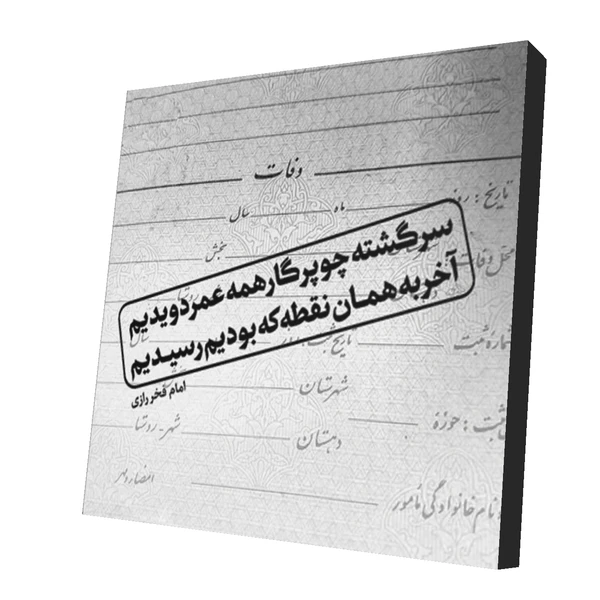 وفات
تاریخ : روز
ماه
سال
محل وفات
بخش
سرگشته چو پرگار همه عمر دویدیم
آخر به همان نقطه که بودیم رسیدیم
امام فخر رازی
سال
شمارهٔ ثبت
تاریخ ثبت : روز
شهرستان
ثبت : حوزه
شهر - روستا
دهستان
نام خانوادگی مأمور
امضاء و مهر